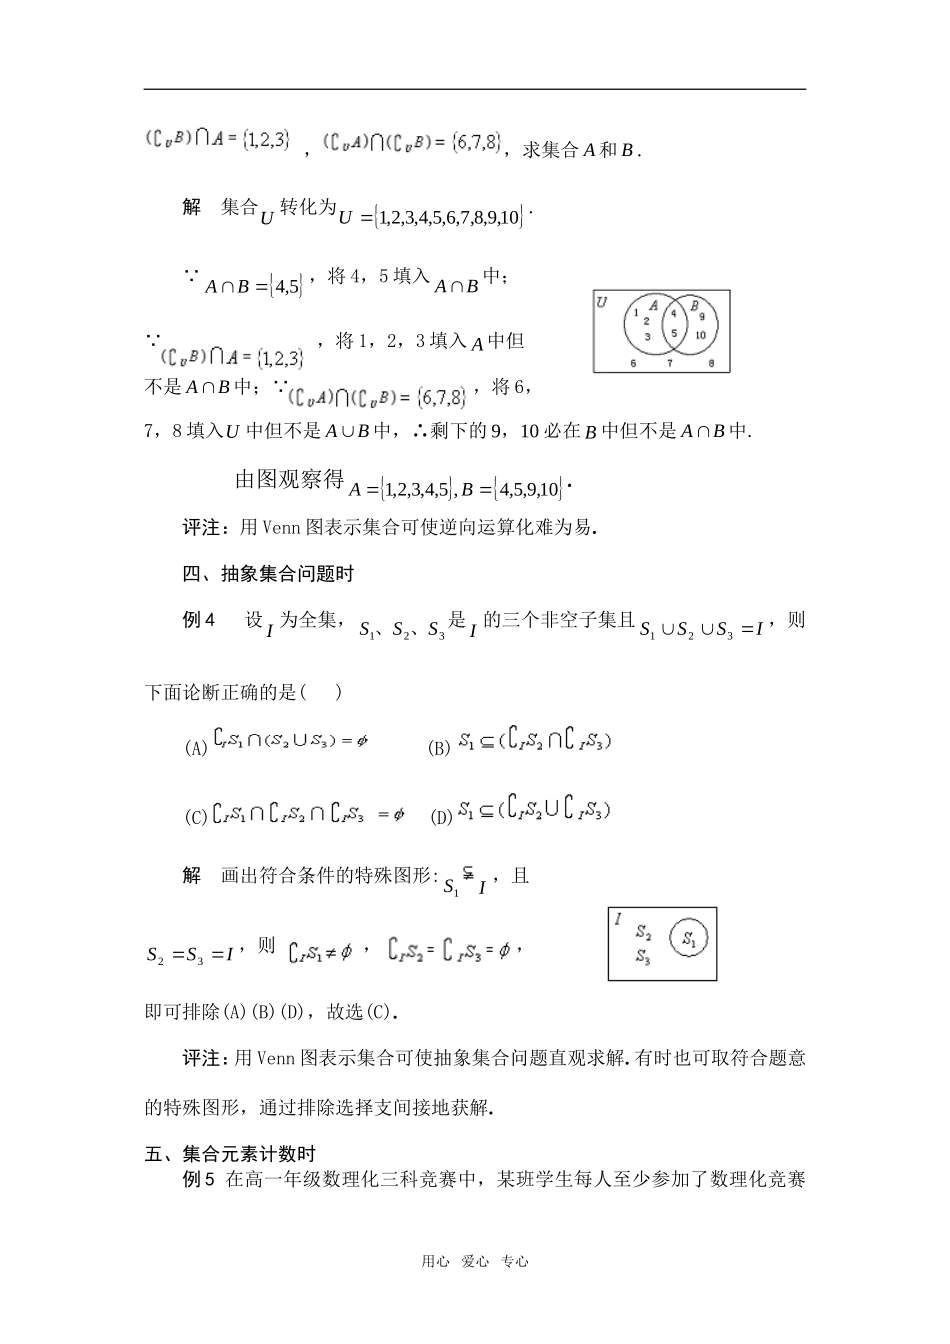 (∁UB)∩A={1,2,3}，(∁UA)∩(∁UB)={6,7,8}，求集合 A 和 B .
解　集合 U 转化为 U ={1,2,3,4,5,6,7,8,9,10} .
∵ A∩B={4,5}，将 4，5 填入 A∩B 中；
∵(∁UB)∩A={1,2,3}，将 1，2，3 填入 A 中但
不是 A∩B 中；∵(∁UA)∩(∁UB)={6,7,8}，将 6，
7，8 填入 U 中但不是 A∪B 中，∴剩下的 9，10 必在 B 中但不是 A∩B 中.
U A B
1 2 3 4 5 9 10
6 7 8
由图观察得 A={1,2,3,4,5}, B={4,5,9,10}．
评注：用 Venn 图表示集合可使逆向运算化难为易．
四、抽象集合问题时
例 4　设 I 为全集，S1、S2、S3 是 I 的三个非空子集且 S1∪S2∪S3=I，则
下面论断正确的是(　)
(A)∁IS1∩(S2∪S3)=ϕ　(B) S1⊆(∁IS2∩∁IS3)
(C)∁IS1∩∁IS2∩∁IS3=ϕ　(D) S1⊆(∁IS2∪∁IS3)
解　画出符合条件的特殊图形: S1⫋I，且
S2=S3=I，则 ∁IS1≠ϕ，∁IS2=∁IS3=ϕ，
I S2 S3 S1
即可排除(A)(B)(D)，故选(C)．
评注：用 Venn 图表示集合可使抽象集合问题直观求解．有时也可取符合题意
的特殊图形，通过排除选择支间接地获解．
五、集合元素计数时
例 5 在高一年级数理化三科竞赛中，某班学生每人至少参加了数理化竞赛
用心 爱心 专心